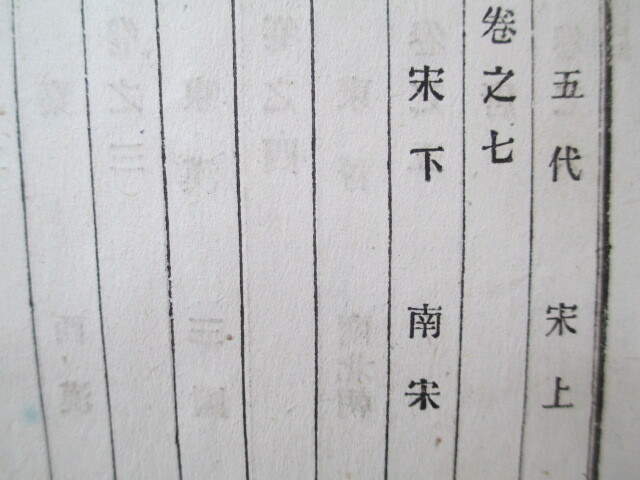 五代 宋上
卷之七
宋下 南宋